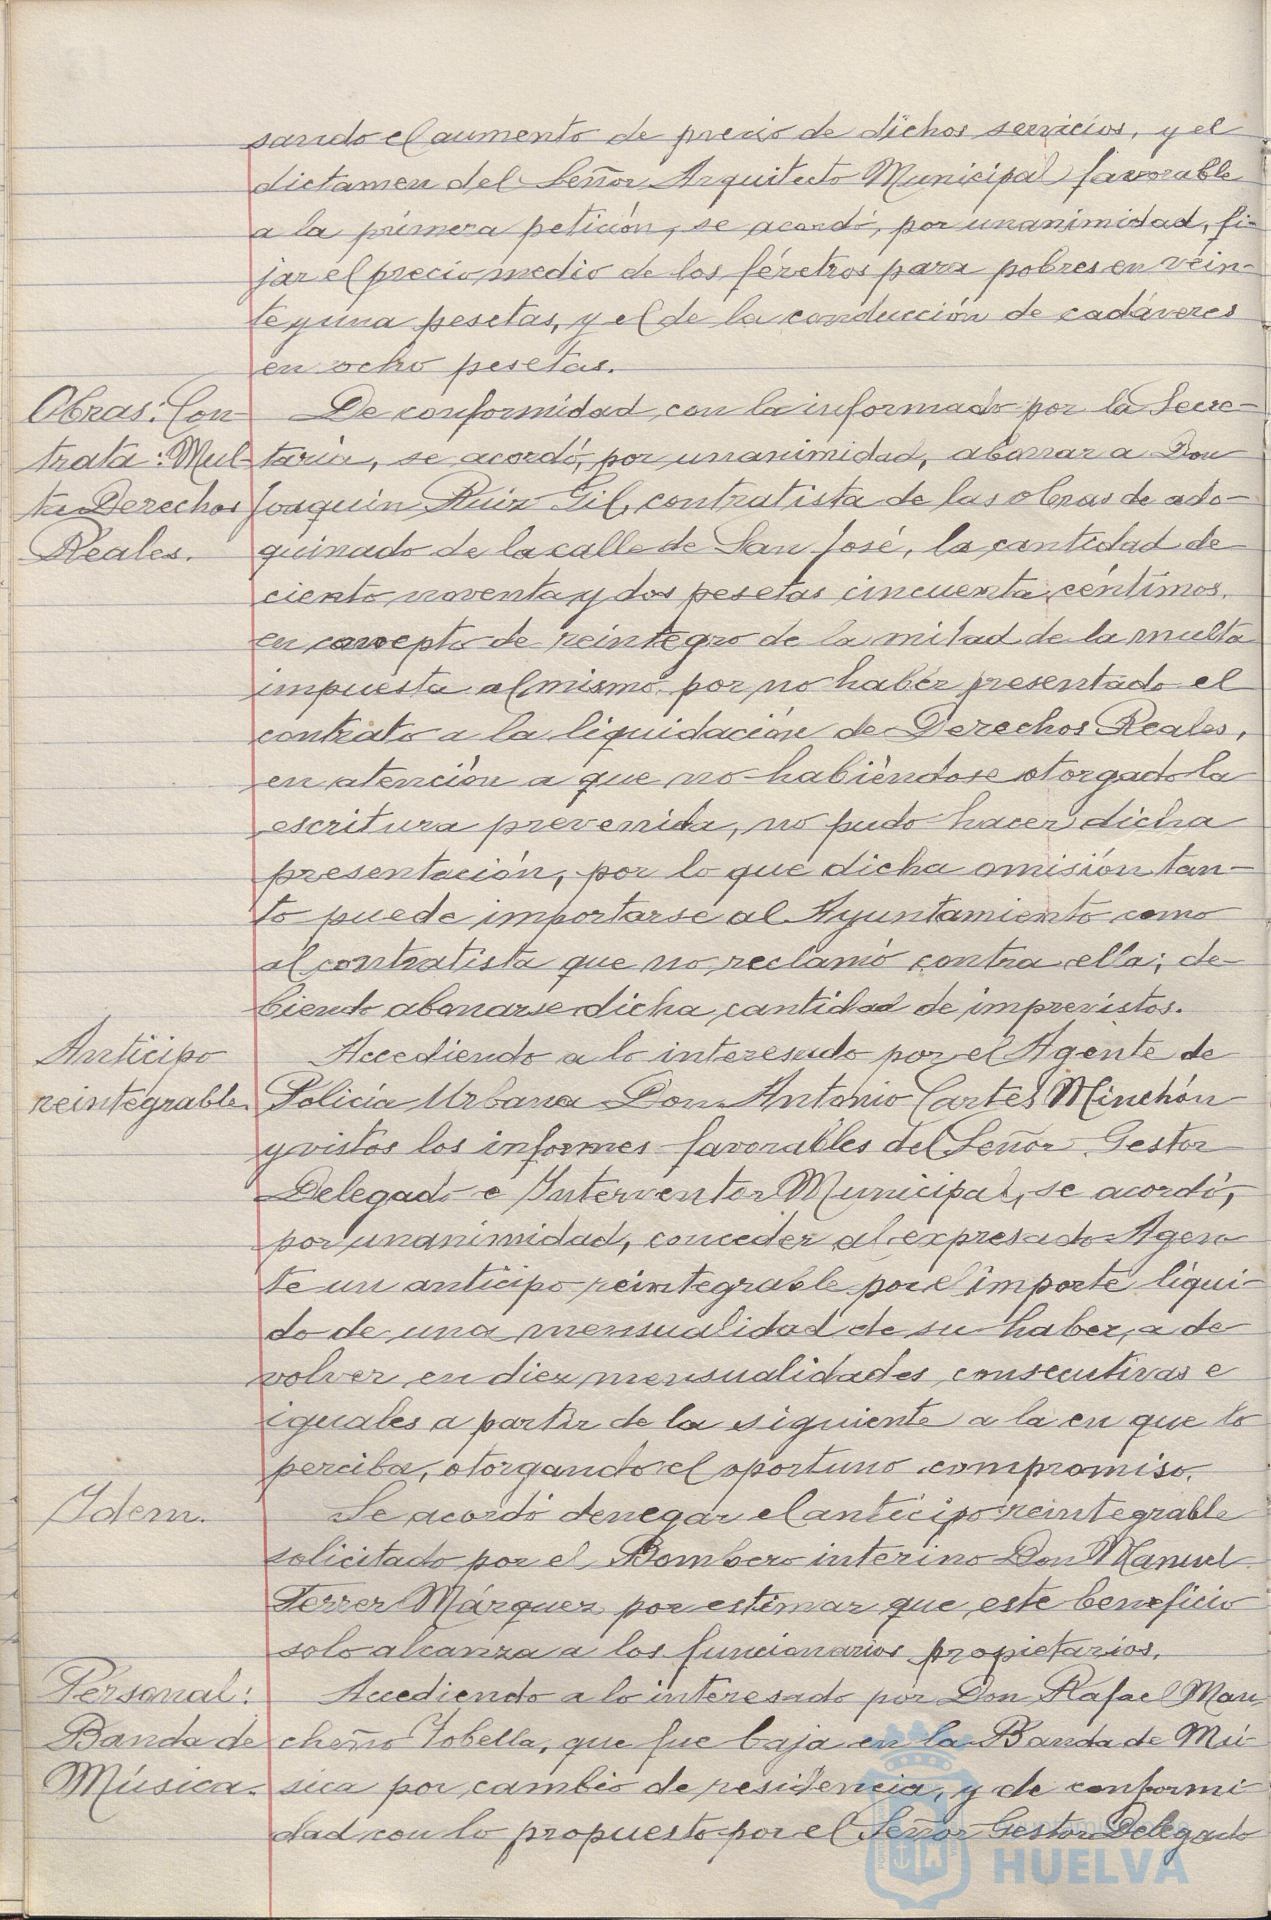 sando el aumento de precio de dichos servicios, y el
dictamen del Señor Arquitecto Municipal favorable
a la primera petición, se acordó, por unanimidad, fi-
jar el precio medio de los féretros para pobres en vein-
te y una pesetas, y el de la conducción de cadáveres
en ocho pesetas.
Obras: Con-
trata: Mul-
ta Derechos
Reales.
De conformidad con la informado por la Secre-
taría, se acordó, por unanimidad, abonar a Don
Joaquín Ruiz Gil, contratista de las obras de ado-
quinado de la calle de San José, la cantidad de
ciento noventa y dos pesetas cincuenta céntimos,
en concepto de reintegro de la mitad de la multa
impuesta al mismo por no haber presentado el
contrato a la liquidación de Derechos Reales,
en atención a que no habiéndose otorgado la
escritura prevenida, no pudo hacer dicha
presentación, por lo que dicha omisión tan-
to puede importarse al Ayuntamiento como
al contratista que no reclamó contra ella; de-
biendo abonarse dicha cantidad de imprevistos.
Anticipo
reintegrable.
Accediendo a lo interesado por el Agente de
Policía Urbana Don Antonio Cartes Minchón
y vistos los informes favorables del Señor Gestor
Delegado e Interventor Municipal, se acordó,
por unanimidad, conceder al expresado Agen-
te un anticipo reintegrable por el importe líqui-
do de una mensualidad de su haber, a de-
volver en diez mensualidades consecutivas e
iguales a partir de la siguiente a la en que lo
perciba, otorgando el oportuno compromiso.
Idem.
Se acordó denegar el anticipo reintegrable
solicitado por el Bombero interino Don Manuel
Ferrer Márquez por estimar que este beneficio
solo alcanza a los funcionarios propietarios.
Personal:
Banda de
Música.
Accediendo a lo interesado por Don Rafael Man-
cheño Tobella, que fue baja en la Banda de Mú-
sica por cambio de residencia, y de conformi-
dad con lo propuesto por el Señor Gestor Delegado
Ayuntamiento de
HUELVA